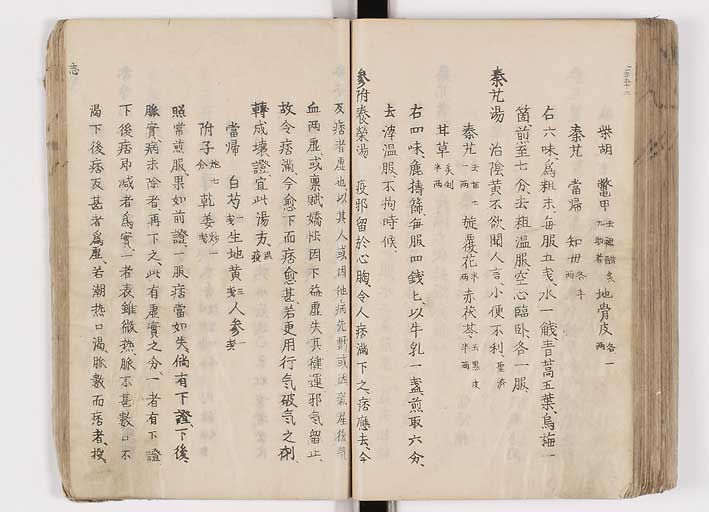 柴胡 鱉甲 去裙醋炙九肋者 地骨皮 各一両
秦艽 當帰 知母 各半両
右六味、爲粗末、毎服五戔、水一盞、青蒿五葉、烏梅一
箇、煎至七分、去粗温服、空心臨卧各一服、
秦艽湯 治陰黄不欲聞人言、小便不利、聖済
秦艽 一両 旋覆花 半両 赤茯苓 去黒皮半両
甘草 炙剉
右四味、麁擣篩、毎服四銭匕、以牛乳一盞、煎取六分、
去滓温服、不拘時候、
參附養榮湯 疫邪留於心胸、令人痞満、下之痞應去、今
反痞者虚也、以其人或因他病先虧、或因新産後氣
血両虚、或禀賦嬌怯、因下益虚、失其健運、邪気留止、
故令痞満、今愈下而痞愈甚、若更用行気破気之剤、
轉成壊證、宜此湯方、温疫
當帰 白芍 一戔 生地黄 三戔 人參 一戔
附子 炮七分 乾姜 炒一戔
照常煎服、果如前證、一服痞當如失、倘有下證、下後、
脈實病未除者、再下之、此有虚實之分、一者有下證
下後痞即减者爲實、一者表雖微熱、脈不甚數、口不
渇、下後痞反甚者爲虚、若潮热口渇、脈數而痞者、投
志